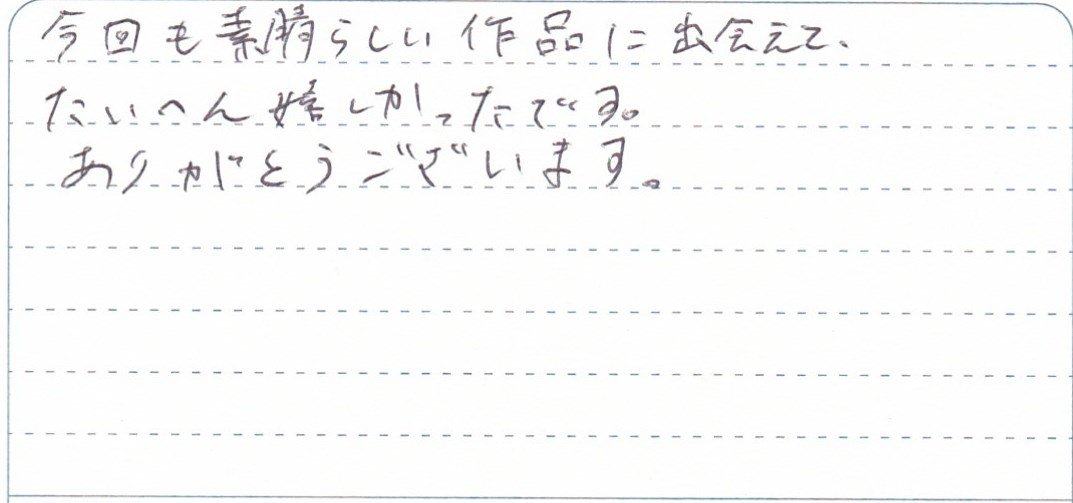 今回も素晴らしい作品に出会えて、
たいへん嬉しかったです。
ありがとうございます。